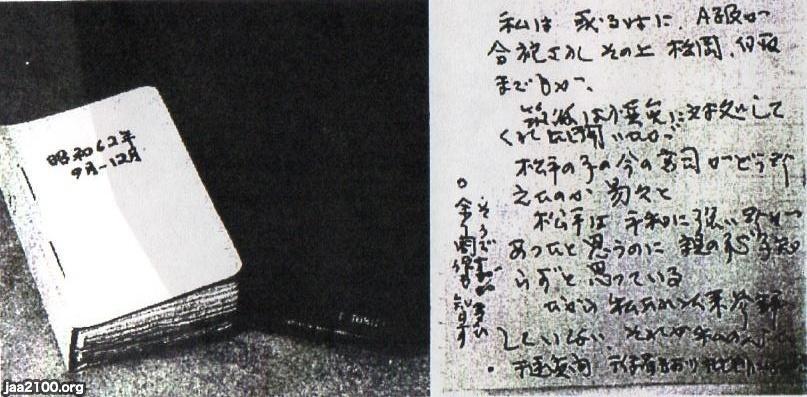 昭和62年
9月-12月
私は 或る時に、A級が
合祀されその上 松岡、白取
までもが、
筑波は慎重に対処して
くれたと聞いたが
松平の子の今の宮司がどう考
えたのか 易々と
松平は 平和に強い考が
あったと思うのに 親の心子知
らずと思っている
だから 私あれ以来参拝
していない それが私の心だ
jaa2100.org